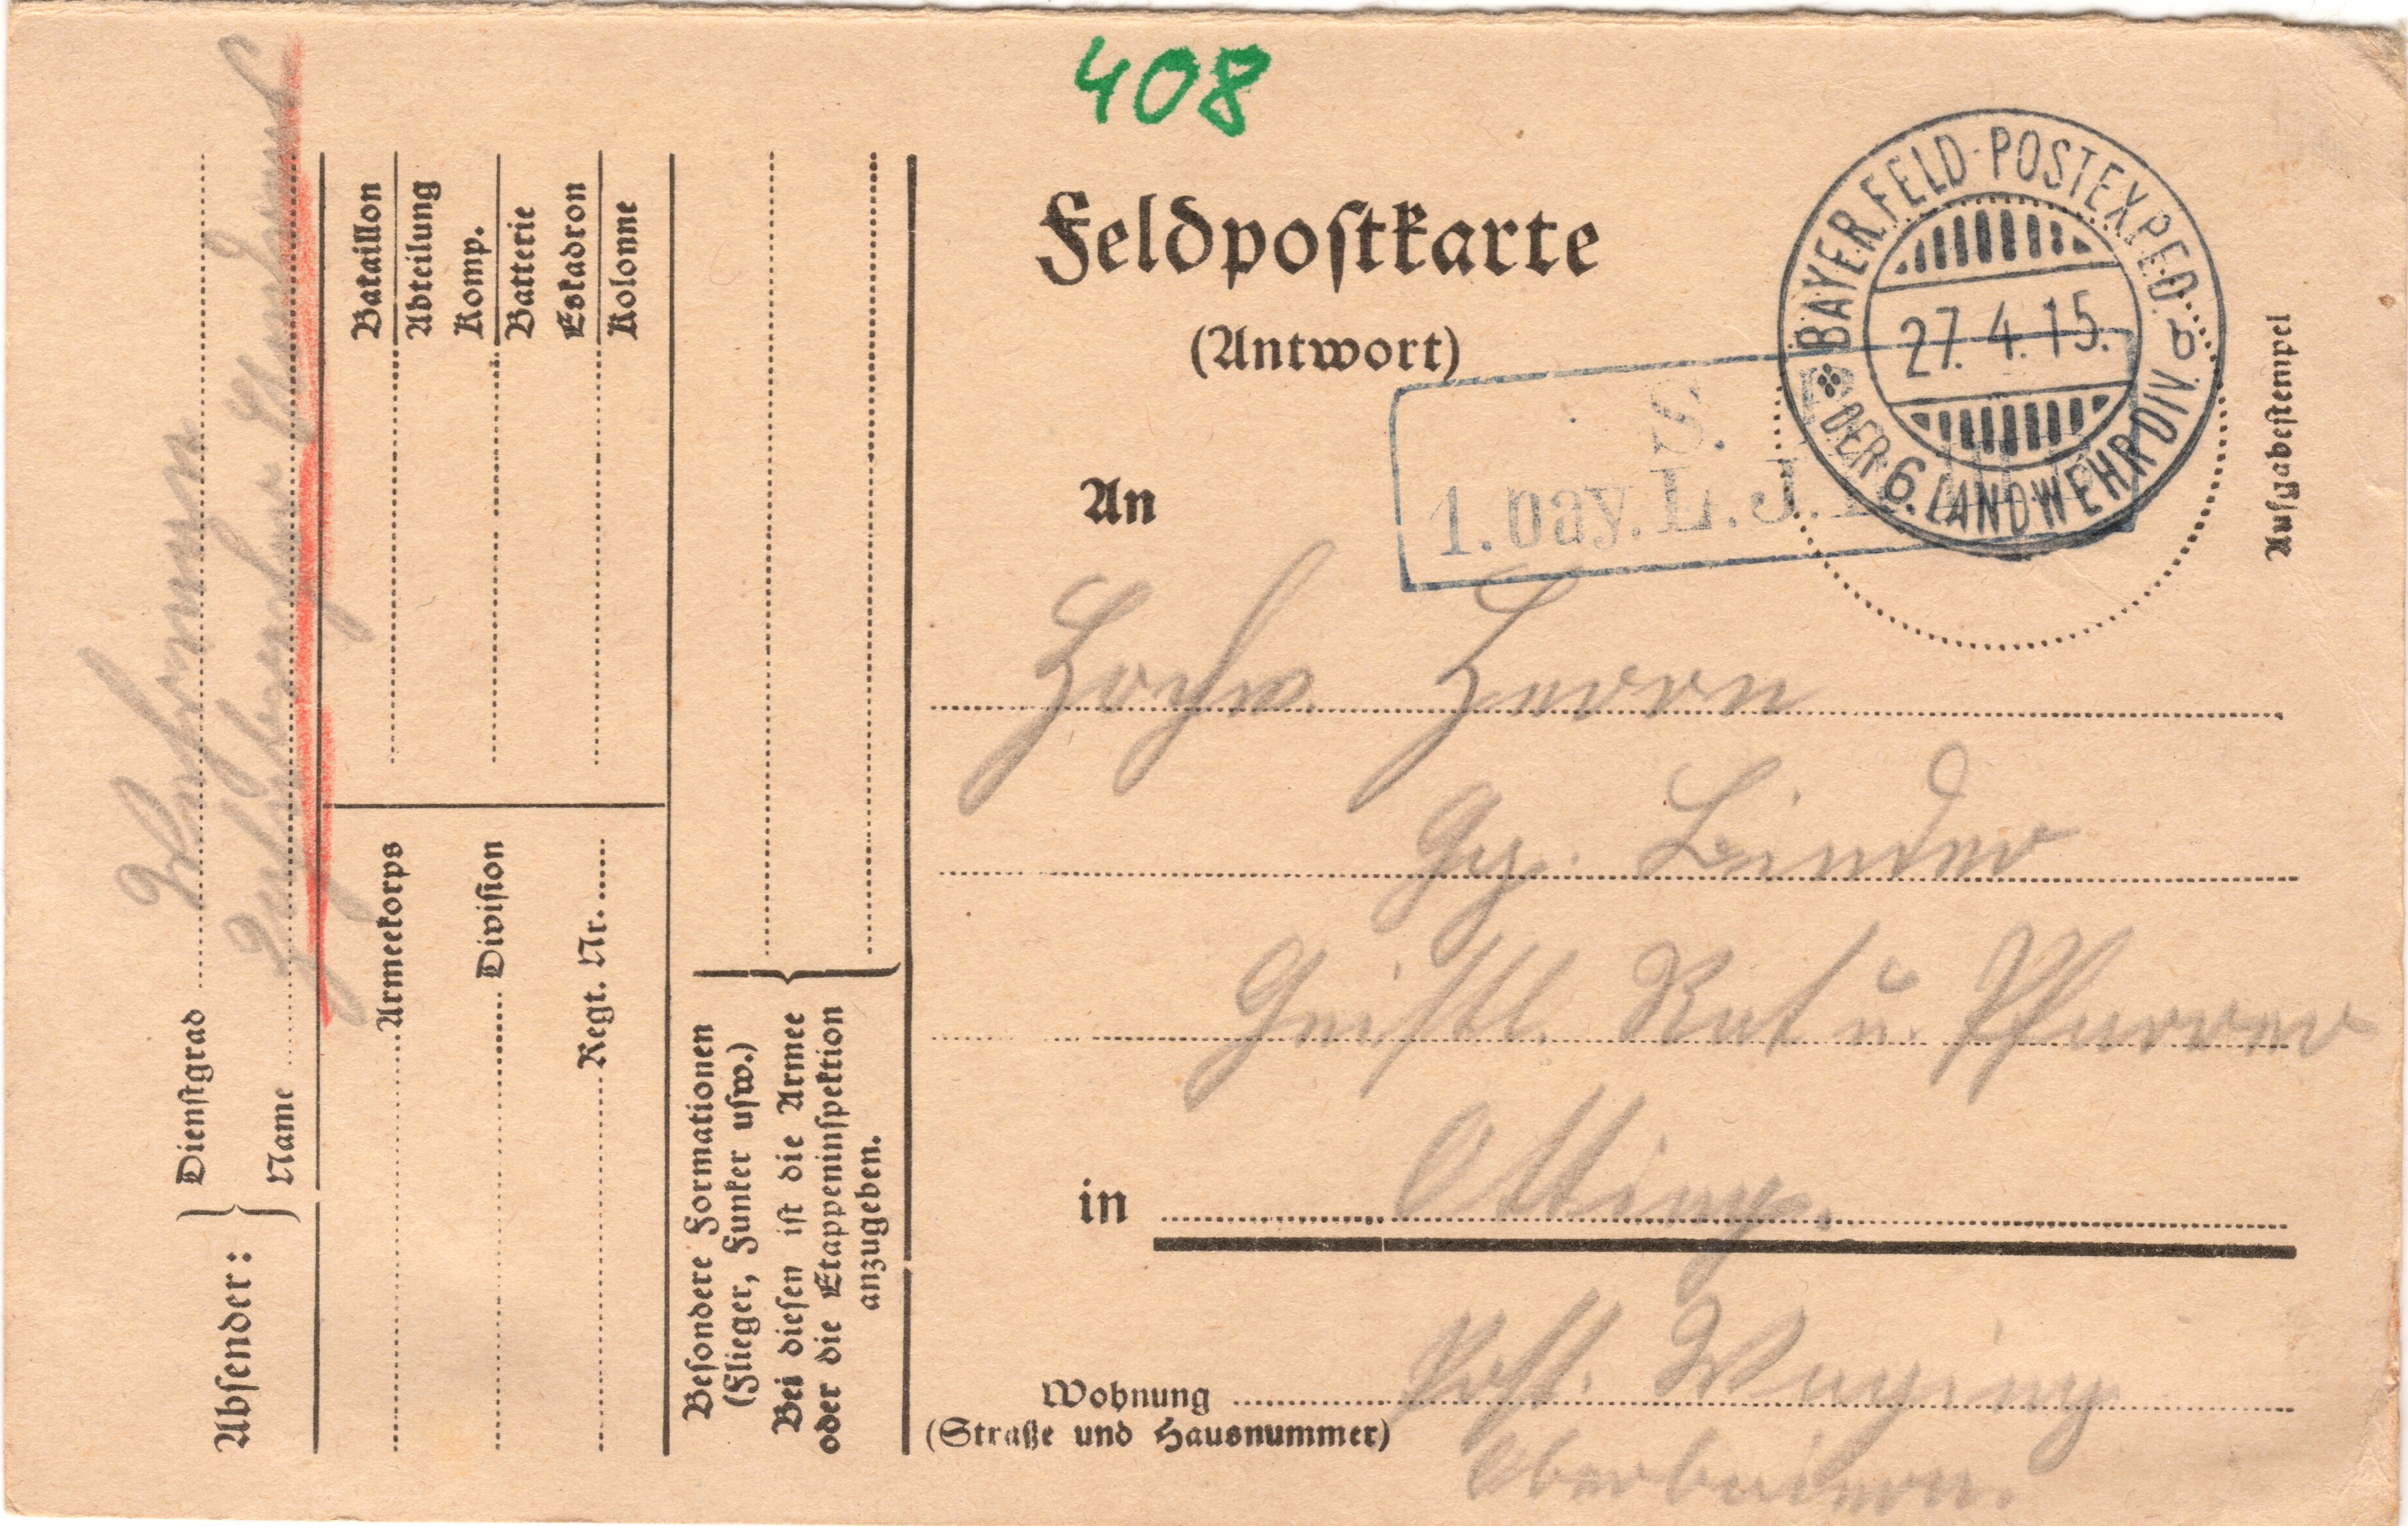 408
Feldpostkarte
(Antwort)
BAYER. FELD-POSTEXPED.
27. 4. 15.
b
DER 6. LANDWEHR DIV.
Aufgabestempel
S.
1. bay. L. J.
An
Hochw. Herrn
Gg. Binder
Geistl. Rat u. Pfarrer
in Otting.
Wohnung Post. Waging
(Straße und Hausnummer)
Oberbaiern.
Absender:
Dienstgrad
Name
Bataillon
Abteilung
Komp.
Batterie
Eskadron
Kolonne
Armeekorps
Division
Regt. Nr.
Besondere Formationen
(Flieger, Funker usw.)
Bei diesen ist die Armee
oder die Etappeninspektion
anzugeben.